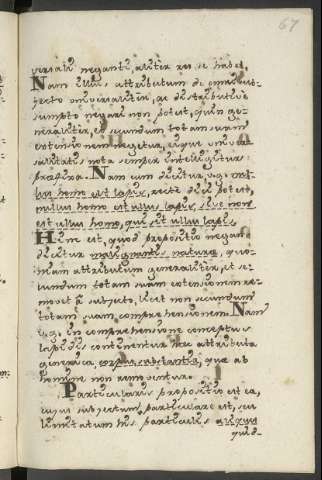 67
versali neganti, aliter res se habet.
Nam illius attributum de omni sub-
jecto universaliter, ac distributive
sumpto negari non potest, quin ge-
neraliter, et secundum totam suam
extensionem negetur, eique univer-
salitatis nota semper intelligitur
præfixa. Nam cum dicitur, v.g. nul-
lus homo est lapis, recte dici potest,
nullus homo est ullus lapis, sive non
est ullus homo, qui sit ullus lapis.
Hinc est, quod propositio negans
dicitur malignantis naturæ, quo-
niam attributum generaliter, et se-
cundum totam suam extensionem re-
movet a subjecto, licet non secundum
totam suam comprehensionem. Nam
v.g. in comprehensione conceptus
lapidis continentur hæc attributa
generica corpus, substantia, quæ ab
homine non removentur.
Particularis propositio est ea,
cujus subjectum particulare est, seu
limitatum his particulis aliquis